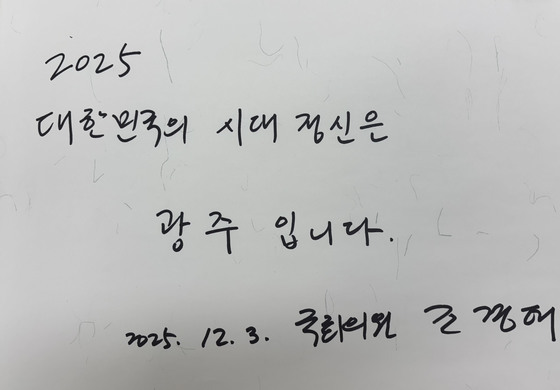 2025
대한민국의 시대 정신은
광주 입니다.
2025. 12. 3. 국회의원 조경태